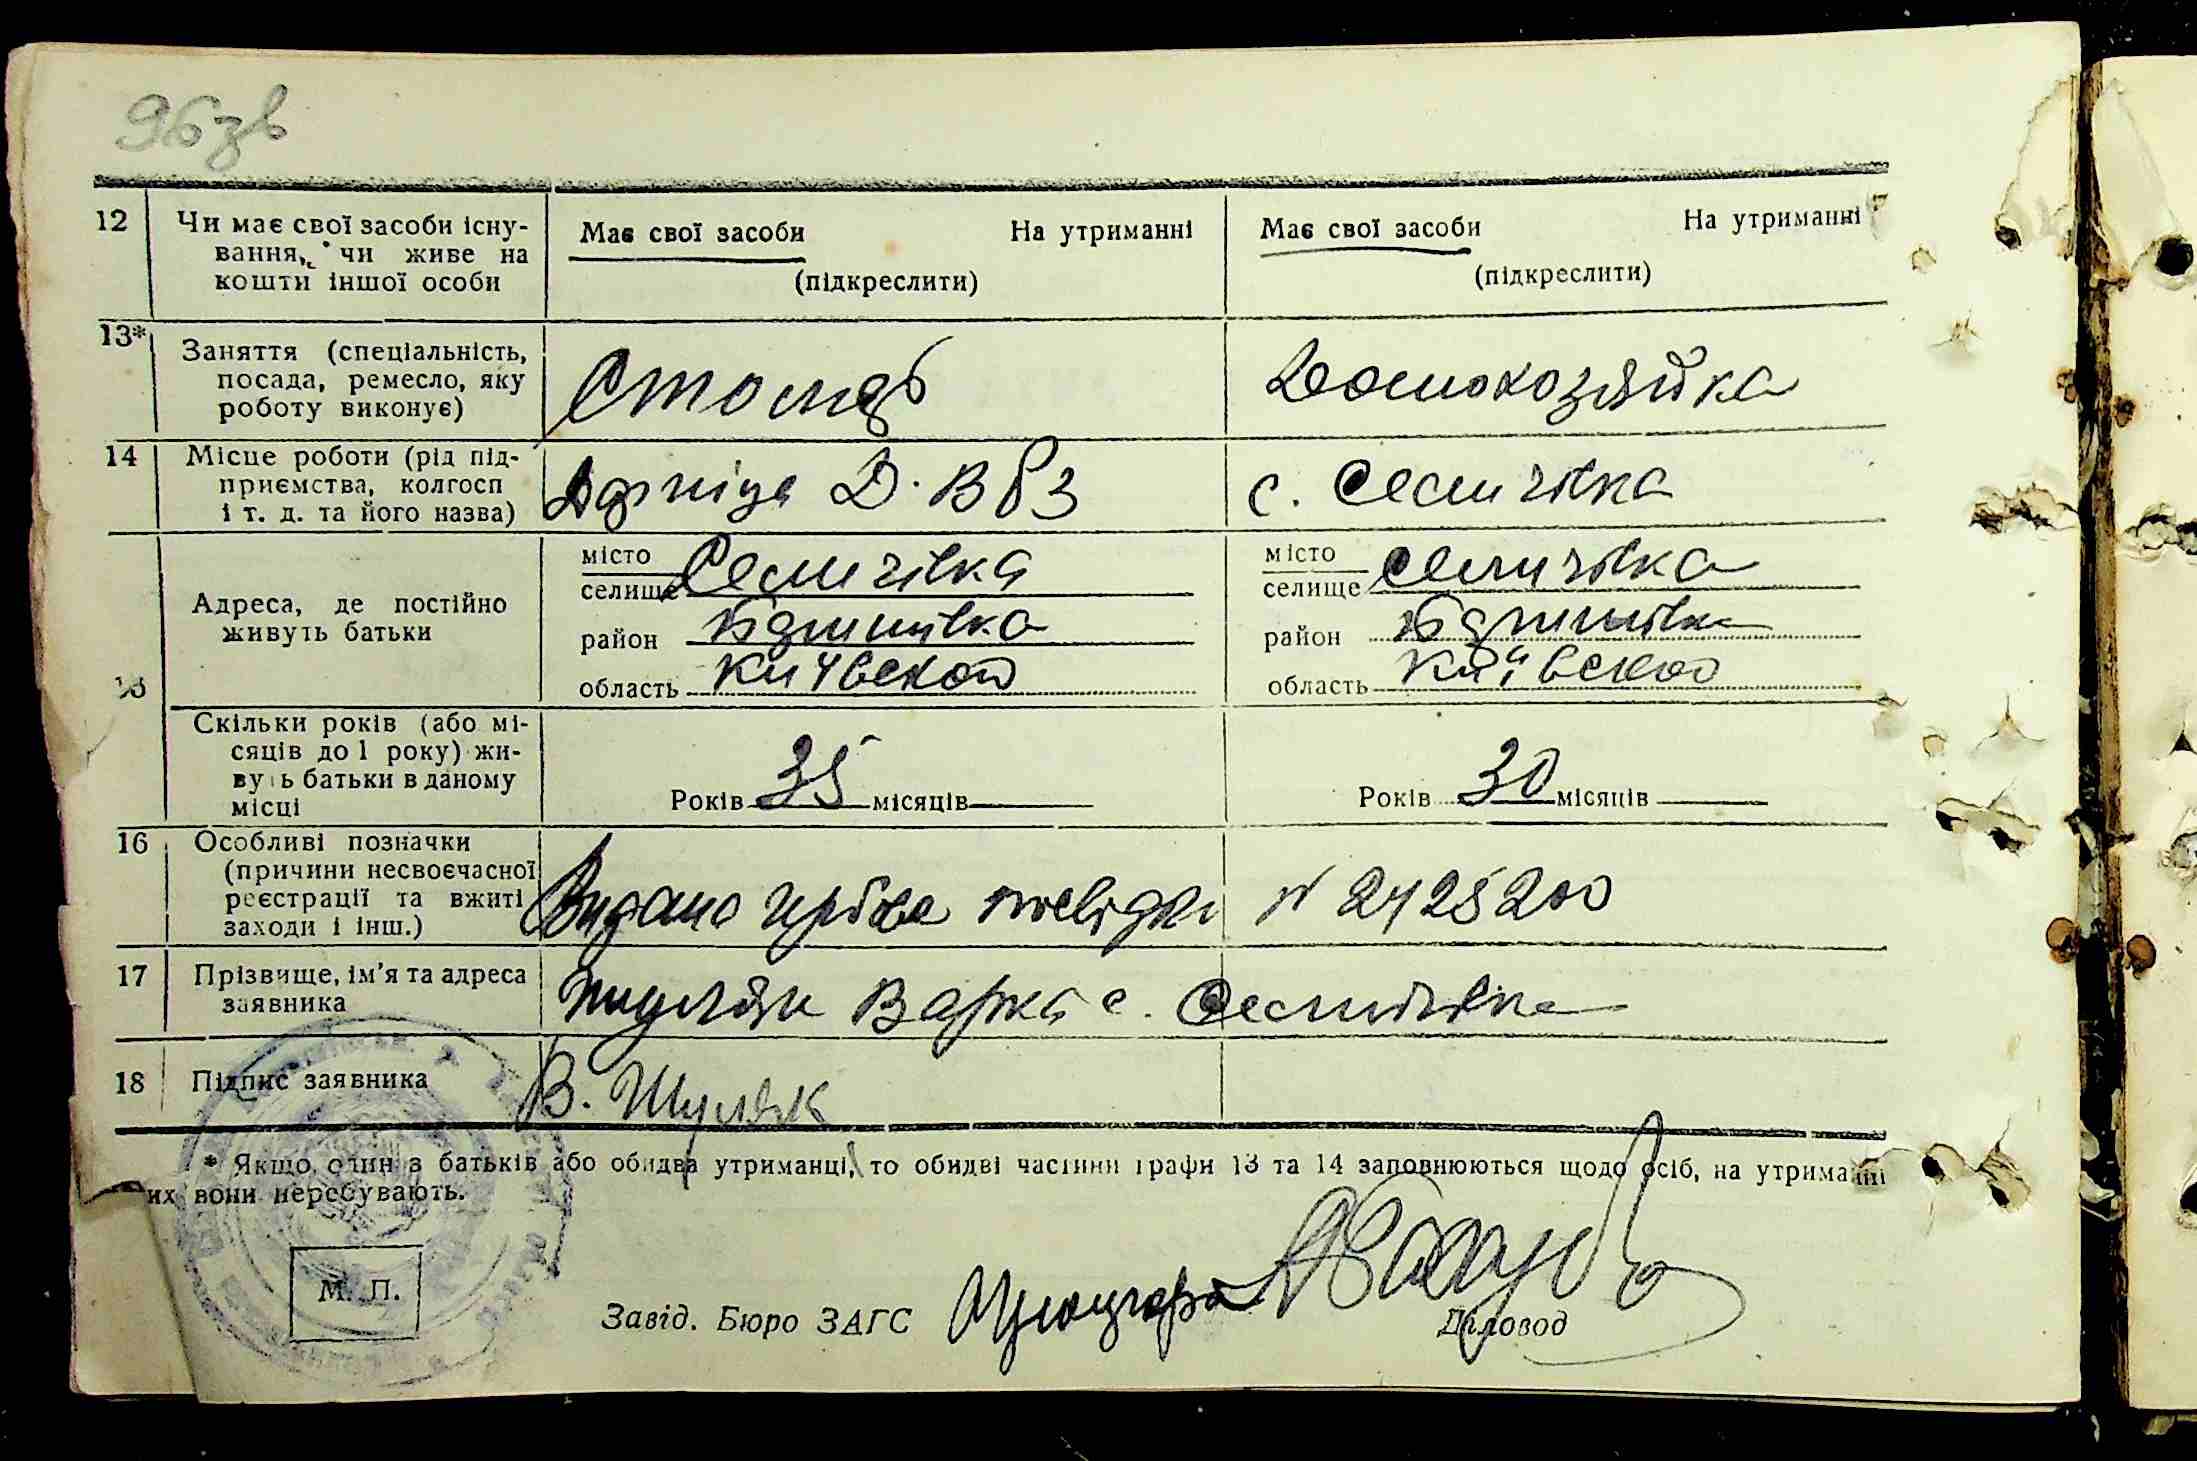 96зв
12 Чи має свої засоби існу-
вання, чи живе на
кошти іншої особи
Має свої засоби На утриманні
(підкреслити)
Має свої засоби На утриманні
(підкреслити)
13* Заняття (спеціальність,
посада, ремесло, яку
роботу виконує)
Столяр
Домохозяйка
14 Місце роботи (рід під-
приємства, колгосп
і т. д. та його назва)
Дарніця Д. В Р З
с. Семичівка
15
Адреса, де постійно
живуть батьки
місто
селище Семичівка
район
область Київской
місто
селище Семичівка
район
область Київской
Скільки років (або мі-
сяців до 1 року) жи-
вуть батьки в даному
місці
Років 35 місяців
Років 30 місяців
16 Особливі позначки
(причини несвоєчасної
реєстрації та вжиті
заходи і інш.)
Видано N 2425200
17 Прізвище, ім'я та адреса
заявника
Шуляк Варка с. Семичівка
18 Підпис заявника
В. Шуляк
* Якщо один з батьків або обидва утриманці, то обидві частини графи 13 та 14 заповнюються щодо осіб, на утриманні
их вони перебувають.
М. П.
Завід. Бюро ЗАГС
Діловод